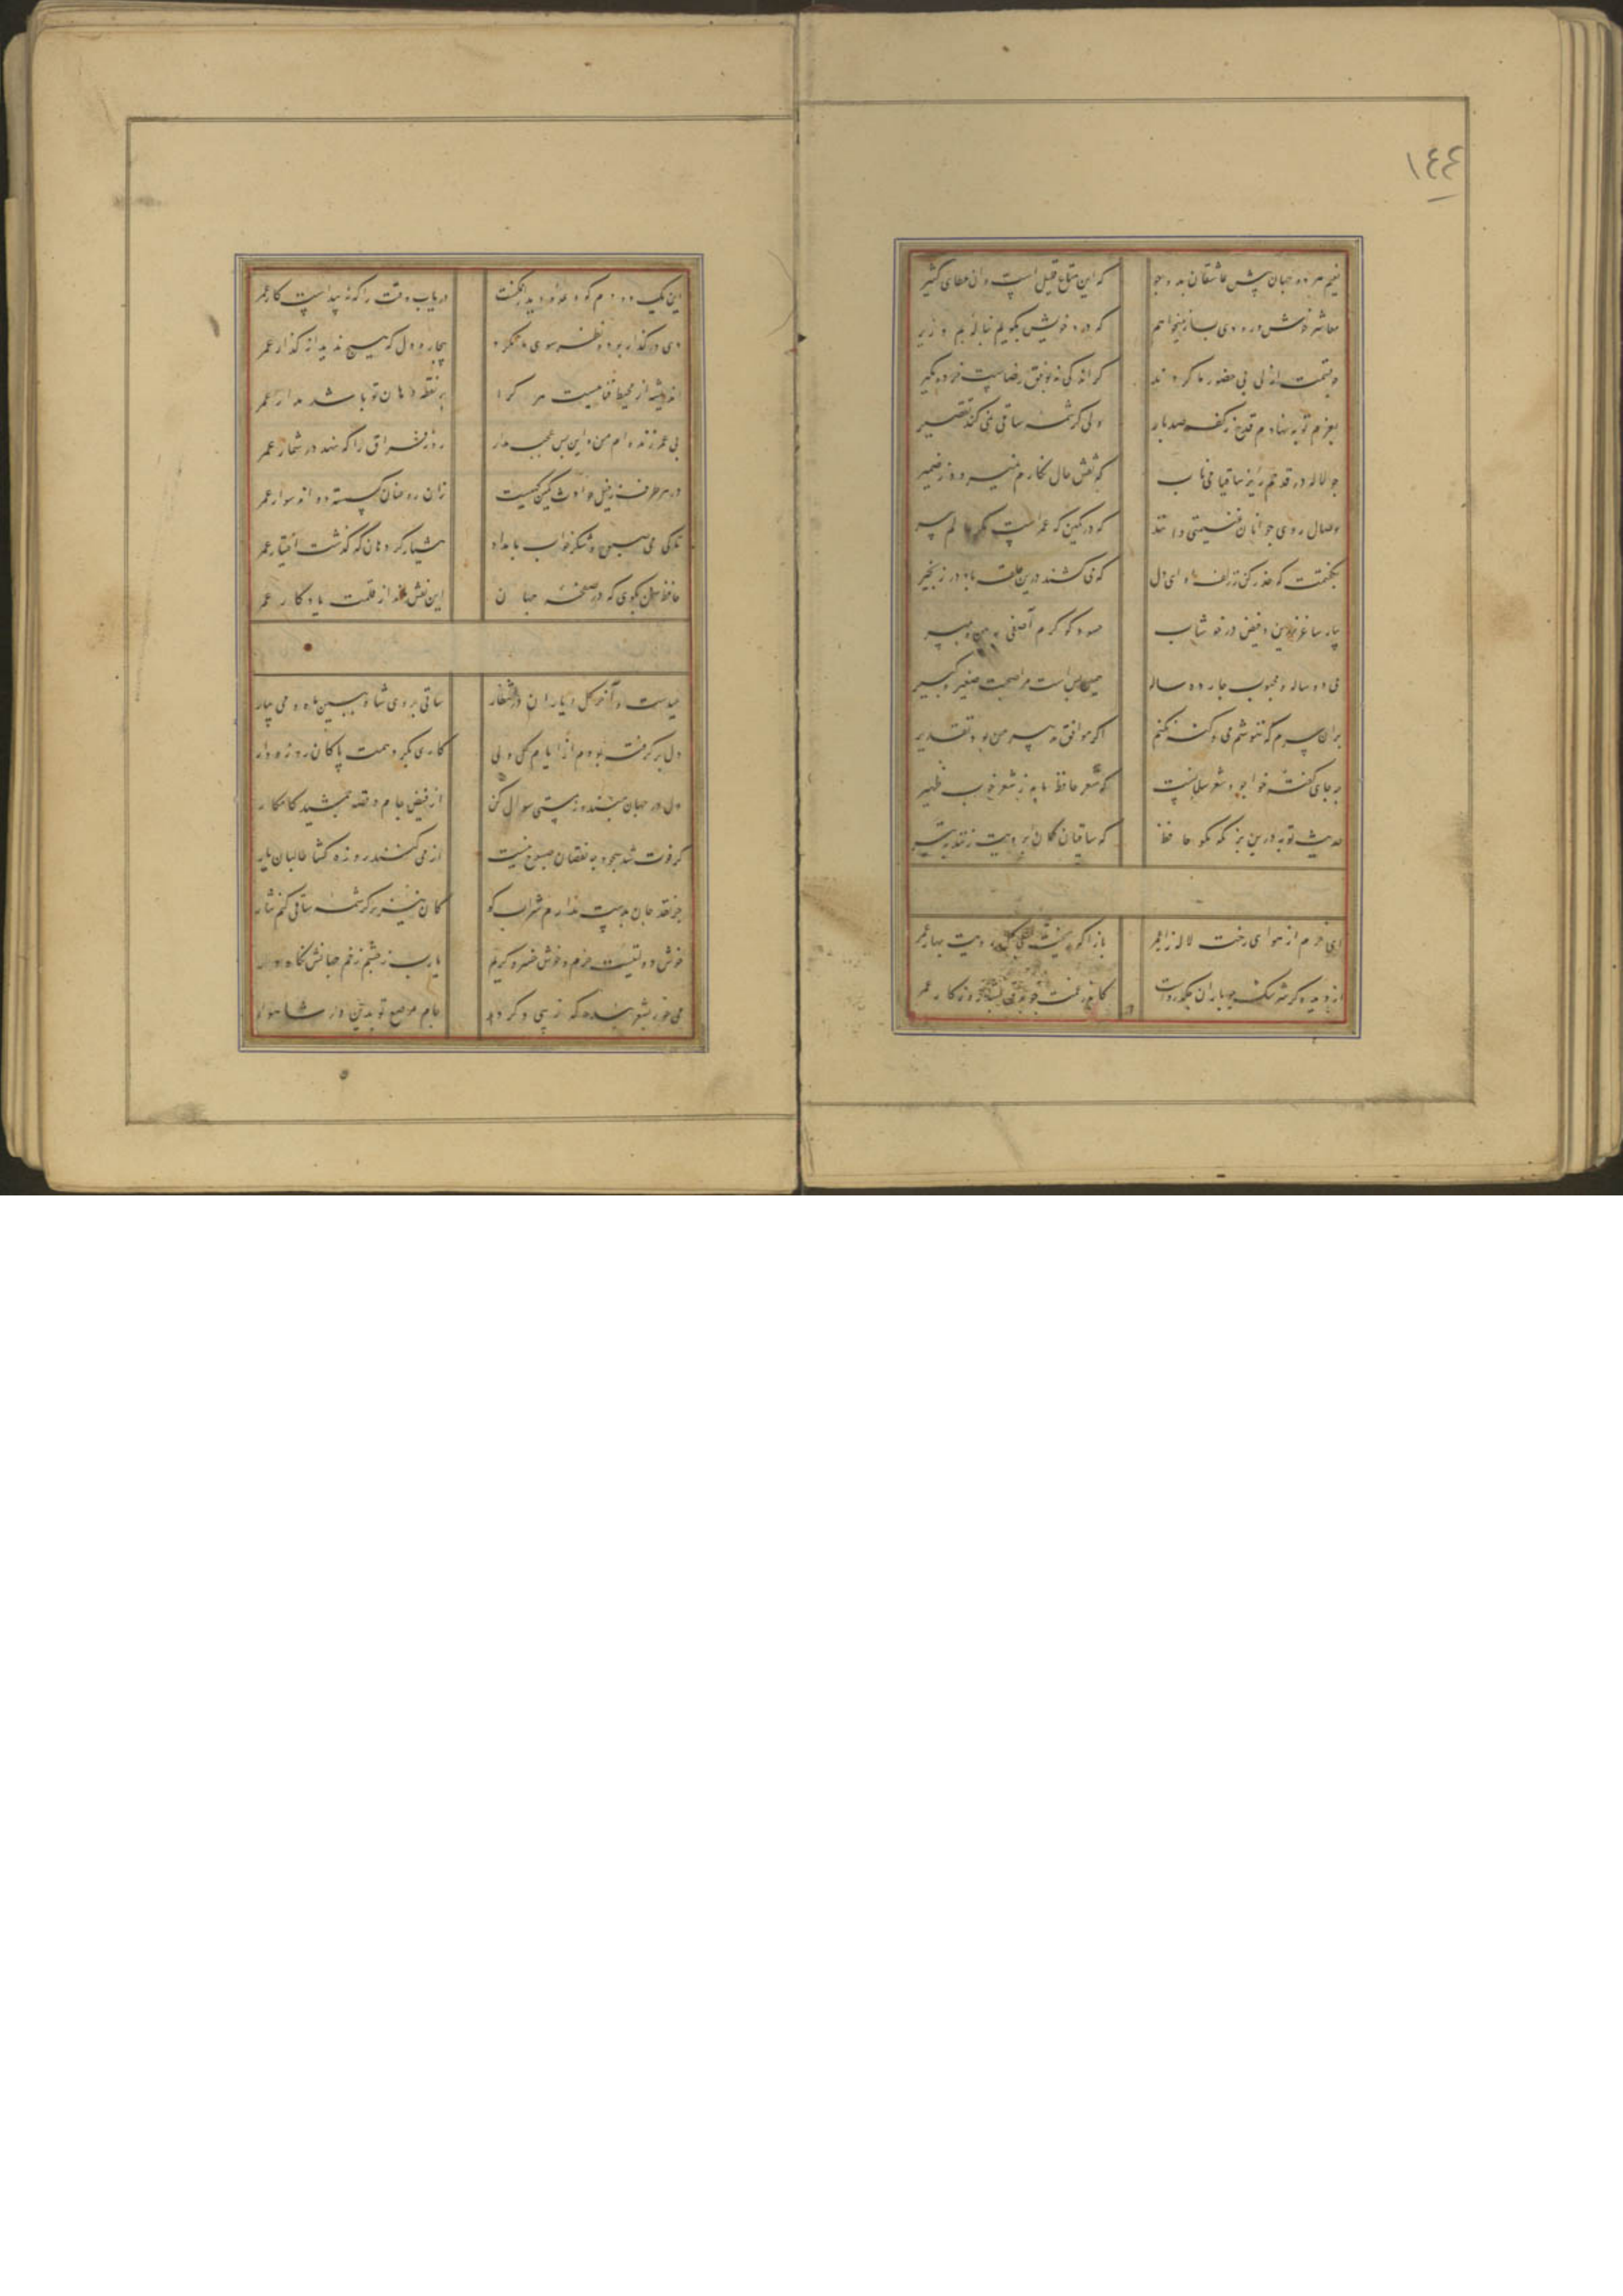 ١٤٤
نعیم هر دو جهان پیش عاشقان بدو جو که این متاع قلیل است و ان عطای کثیر
معاشر خوش و رودی بساز میخواهم که درد خویش بگویم بناله بم و زیر
چو قسمت ازلی بی حضور ما کردند کر اندکی نه بوفق رضاست خرده مکیر
بعزم توبه نهادم قدح ز کف صد بار ولی کرشمه ساقی نمی کند تقصیر
چو لاله در قدحم ریز ساقیا می ناب که نقش خال نکارم نمیرود ز ضمیر
وصال روی جوانان غنیمتی دانند که در کمین که عمر است مکر عالم پیر
نکفتمت که حذر کن ز زلف او ای دل که می کشند درین حلقه باد در زنجیر
بیار ساغر و فیض در خوشاب حسود کو کرم آصفی ببین و بمیر
می دو ساله و محبوب چارده ساله همین بس است مرا صحبت صغیر و کبیر
بران سرم که ننوشم می و کنه نکنم اکر موافق تدبیر من بود تقدیر
چه جای کفته خواجو و شعر سلمانست که شعر حافظ ما به ز شعر خوب ظهیر
حدیث توبه درین بزم که مکو حافظ که ساقیان کمان ابرویت زنند به تیر
ای خرم از هوای رخت لاله زار عمر بازا که ریخت بی کل رویت بهار عمر
از دیده کر سرشک چو باران چکد رواست کاندر غمت چو برق بشد روزکار عمر
این یک دو دم که دیدار ممکنست دریاب وقت را که نه پیداست کار عمر
دی در کذار بود و نظر سوی ما نکرد بیچاره دل که هیچ ندید از کذار عمر
اندیشه از محیط فنا نیست هر کرا بر نقطه دهان تو باشد مدار عمر
بی عمر زنده ام من و این بس عجب مدار روز فراق را که نهد در شمار عمر
در هر طرف ز خیل حوادث کمین کهیست زان رو عنان کسسته دواند سوار عمر
تا کی می صبوح و شکر خواب بامداد هشیار کرد هان که کذشت اختیار عمر
حافظ سخن بکوی که در صفحه جهان این نقش ماند از قلمت یادکار عمر
عیدست و آخر کل و یاران در انتظار ساقی بروی شاه ببین ماه و می بیار
دل بر کرفته بودم از ایام کل ولی کاری بکرد همت پاکان روزه دار
دل در جهان مبند و ز مستی سوال کن از فیض جام و قصه جمشید کامکار
کر فوت شد سحور چه نقصان صبوح نیست از می کنند روزه کشا طالبان یار
جز نقد جان بدست ندارم شراب کو کان نیز بر کرشمه ساقی کنم نثار
خوش دولتیست خرم و خوش خسرو کریم یارب ز چشم زخم جهانش نکاه دار
می خور بشعر بنده که زیبی دکر دهد جام مرصع تو بدین در شاهوار